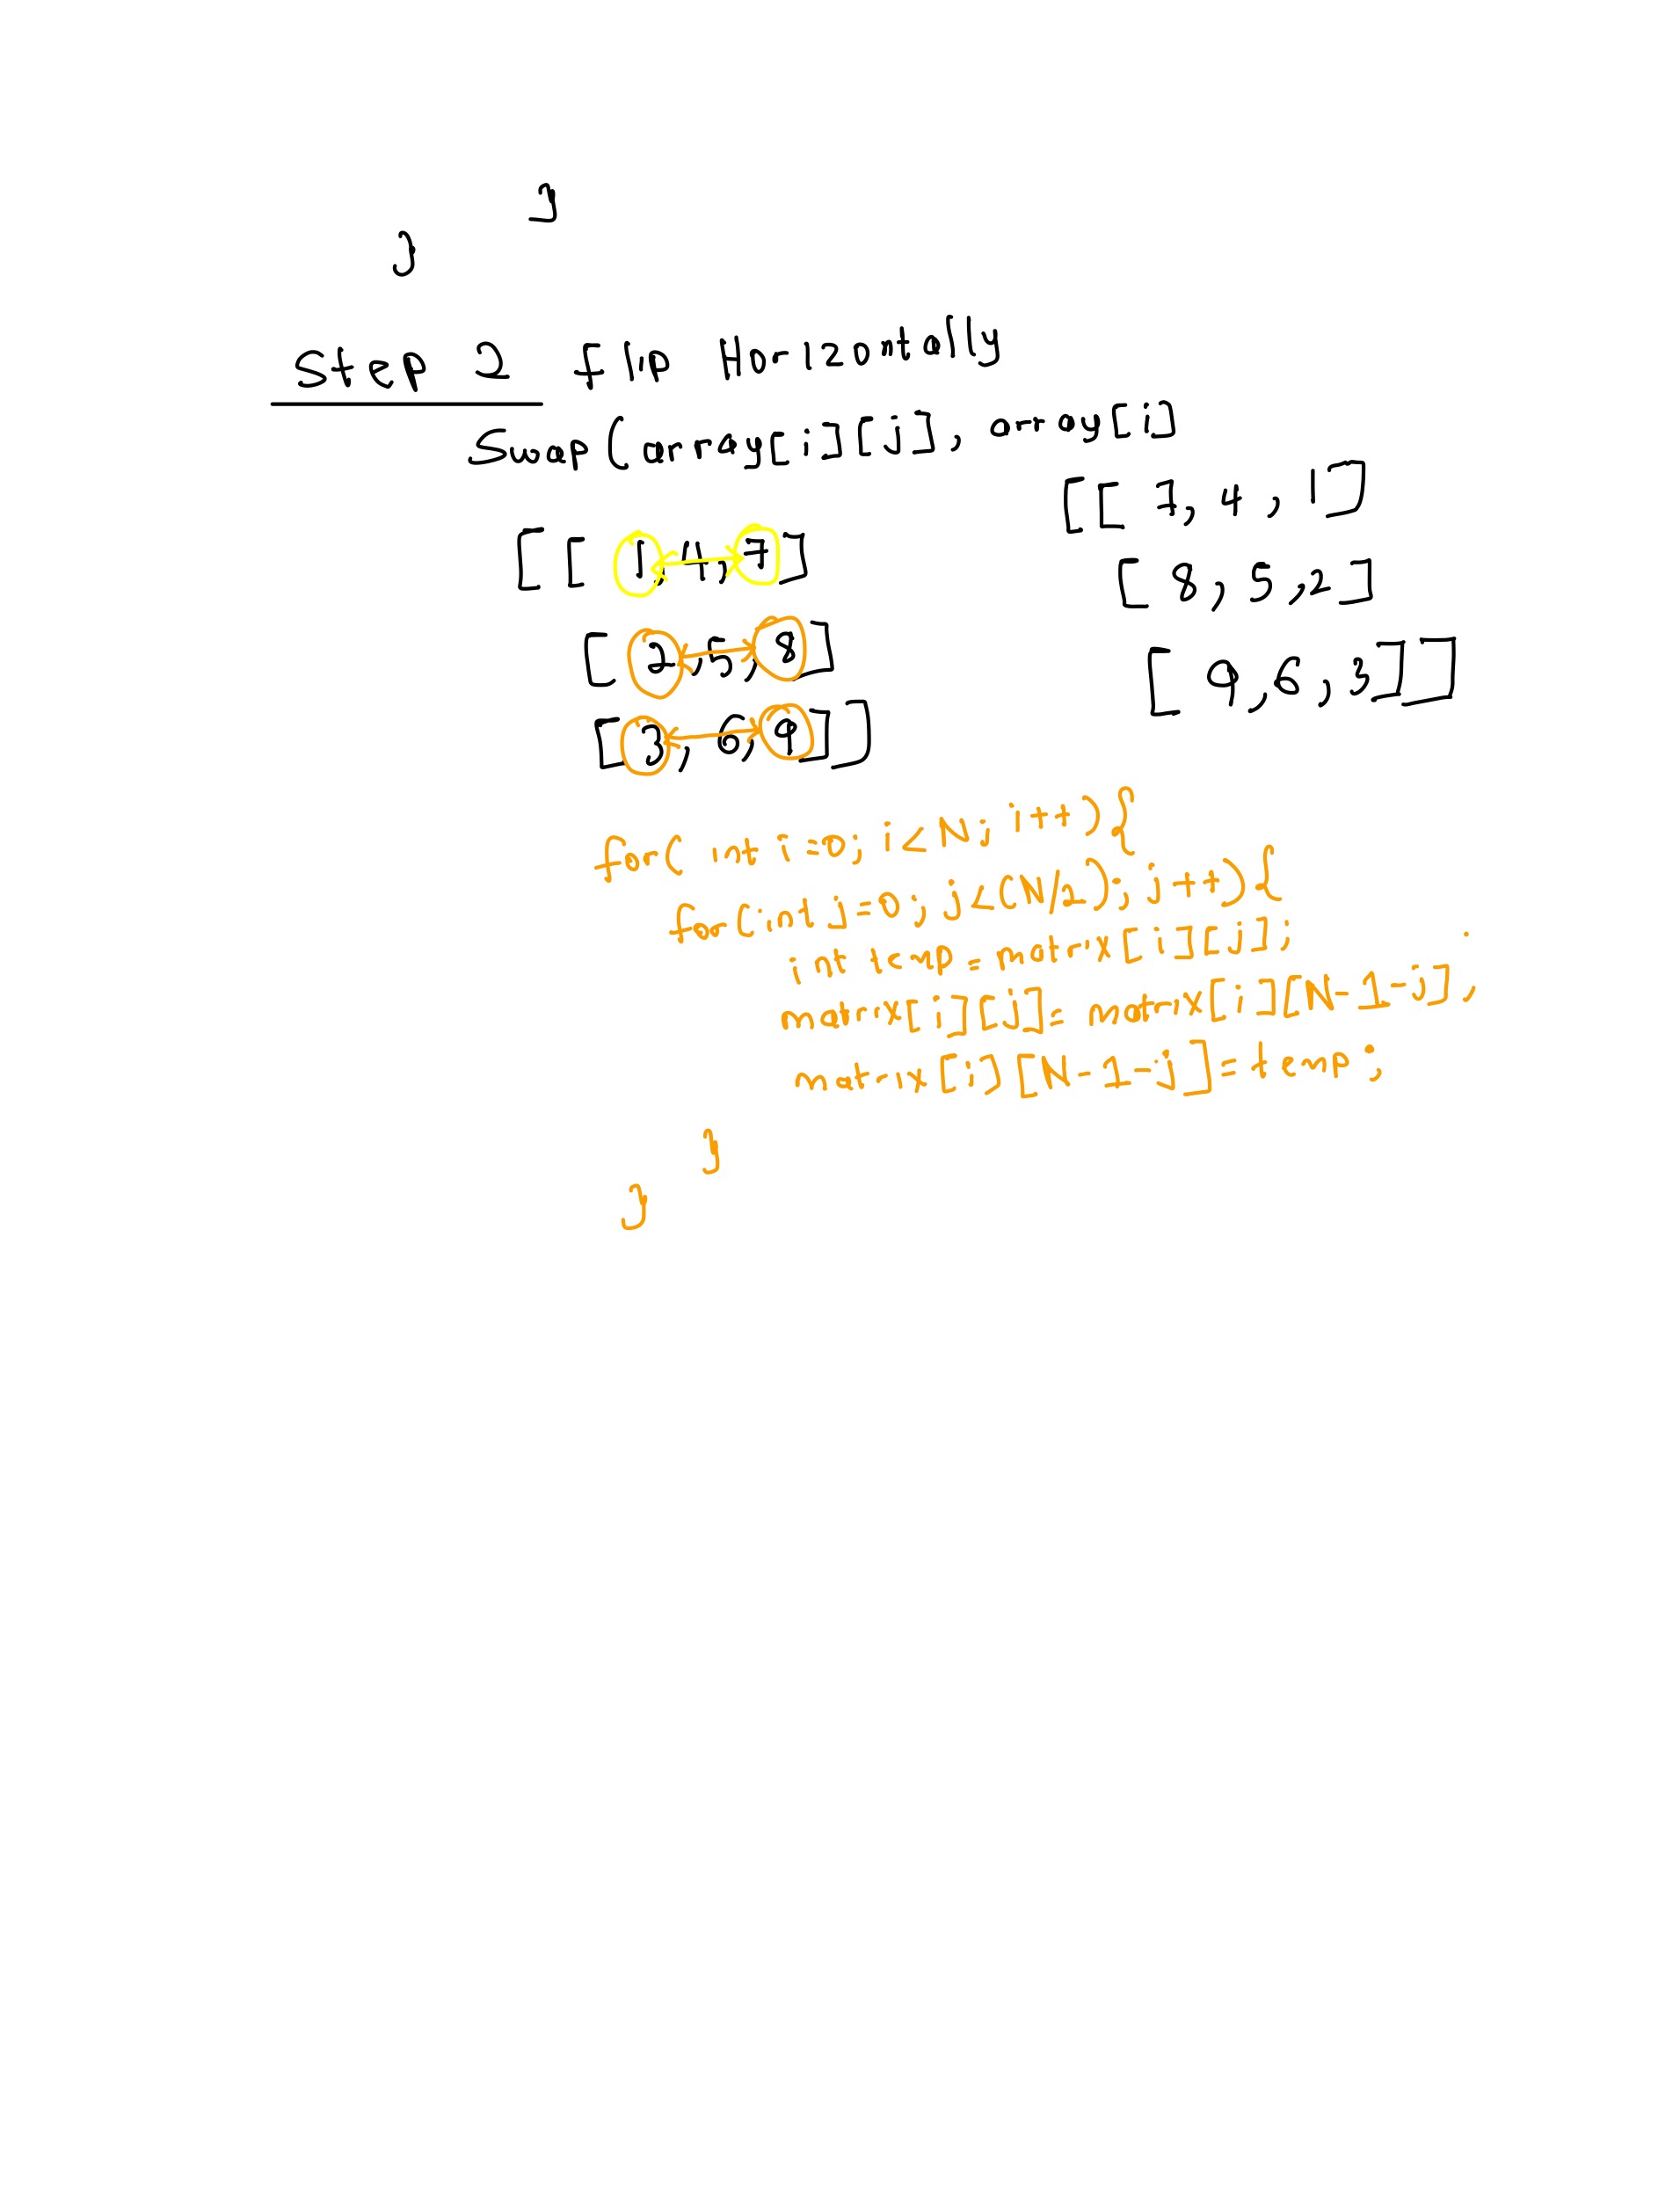 }
}
Step 2 flip Horizontally
Swap(array[i][j], array[i]
[[ 1, 4, 7]
[ 2, 5, 8]
[ 3, 6, 9]]
[[ 7, 4, 1]
[ 8, 5, 2]
[ 9, 6, 3]]
for( int i=0; i<N; i++){
for(int j=0; j<(N/2); j++){
int temp = matrix[i][j];
matrix[i][j] = matrix[i][N-1-j];
matrix[i][N-1-j] = temp;
}
}